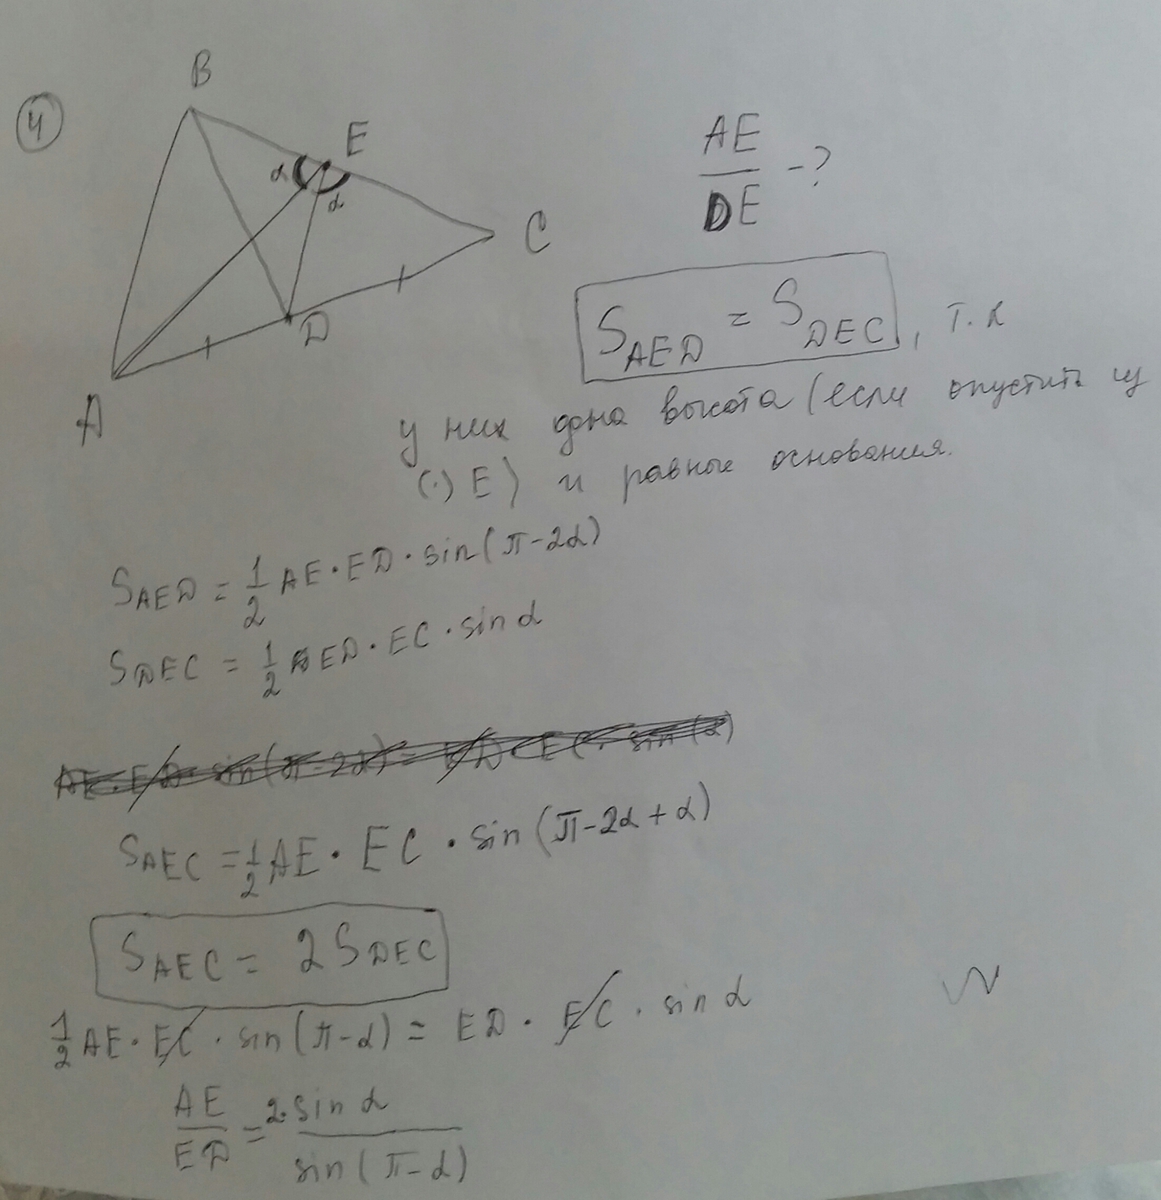 4
B
E
α
α
C
D
A
AE/DE - ?
S_AED = S_DEC, т.к
у них одна высота (если опустить из
(·) E) и равные основания.
S_AED = 1/2 AE · ED · sin(π-2α)
S_DEC = 1/2 ED · EC · sin α
S_AEC = 1/2 AE · EC · sin(π-2α+α)
S_AEC = 2 S_DEC
1/2 AE · EC · sin(π-α) = ED · EC · sin α
AE/ED = 2 · sin α / sin(π-α)